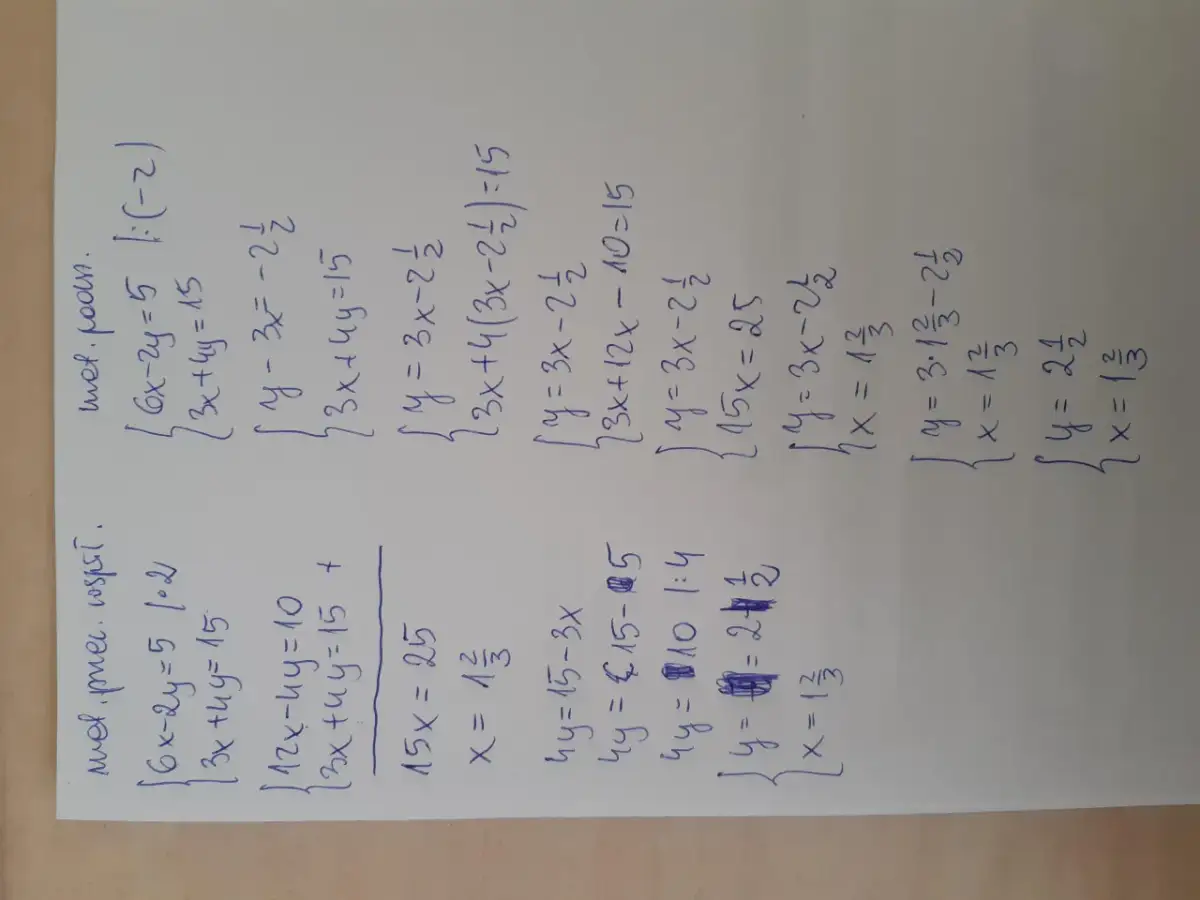 met. przec. współ.
{6x-2y=5 |·2
{3x+4y=15
{12x-4y=10
{3x+4y=15 +
15x = 25
x = 1 2/3
4y=15-3x
4y= 15-5
4y= 10 |:4
{y= = 2 1/2
{x=1 2/3
met. podst.
{6x-2y=5 |:(-2)
{3x+4y=15
{y-3x=-2 1/2
{3x+4y=15
{y=3x-2 1/2
{3x+4(3x-2 1/2)=15
{y=3x-2 1/2
{3x+12x-10=15
{y=3x-2 1/2
{15x=25
{y=3x-2 1/2
{x=1 2/3
{y=3·1 2/3-2 1/2
{x=1 2/3
{y=2 1/2
{x=1 2/3